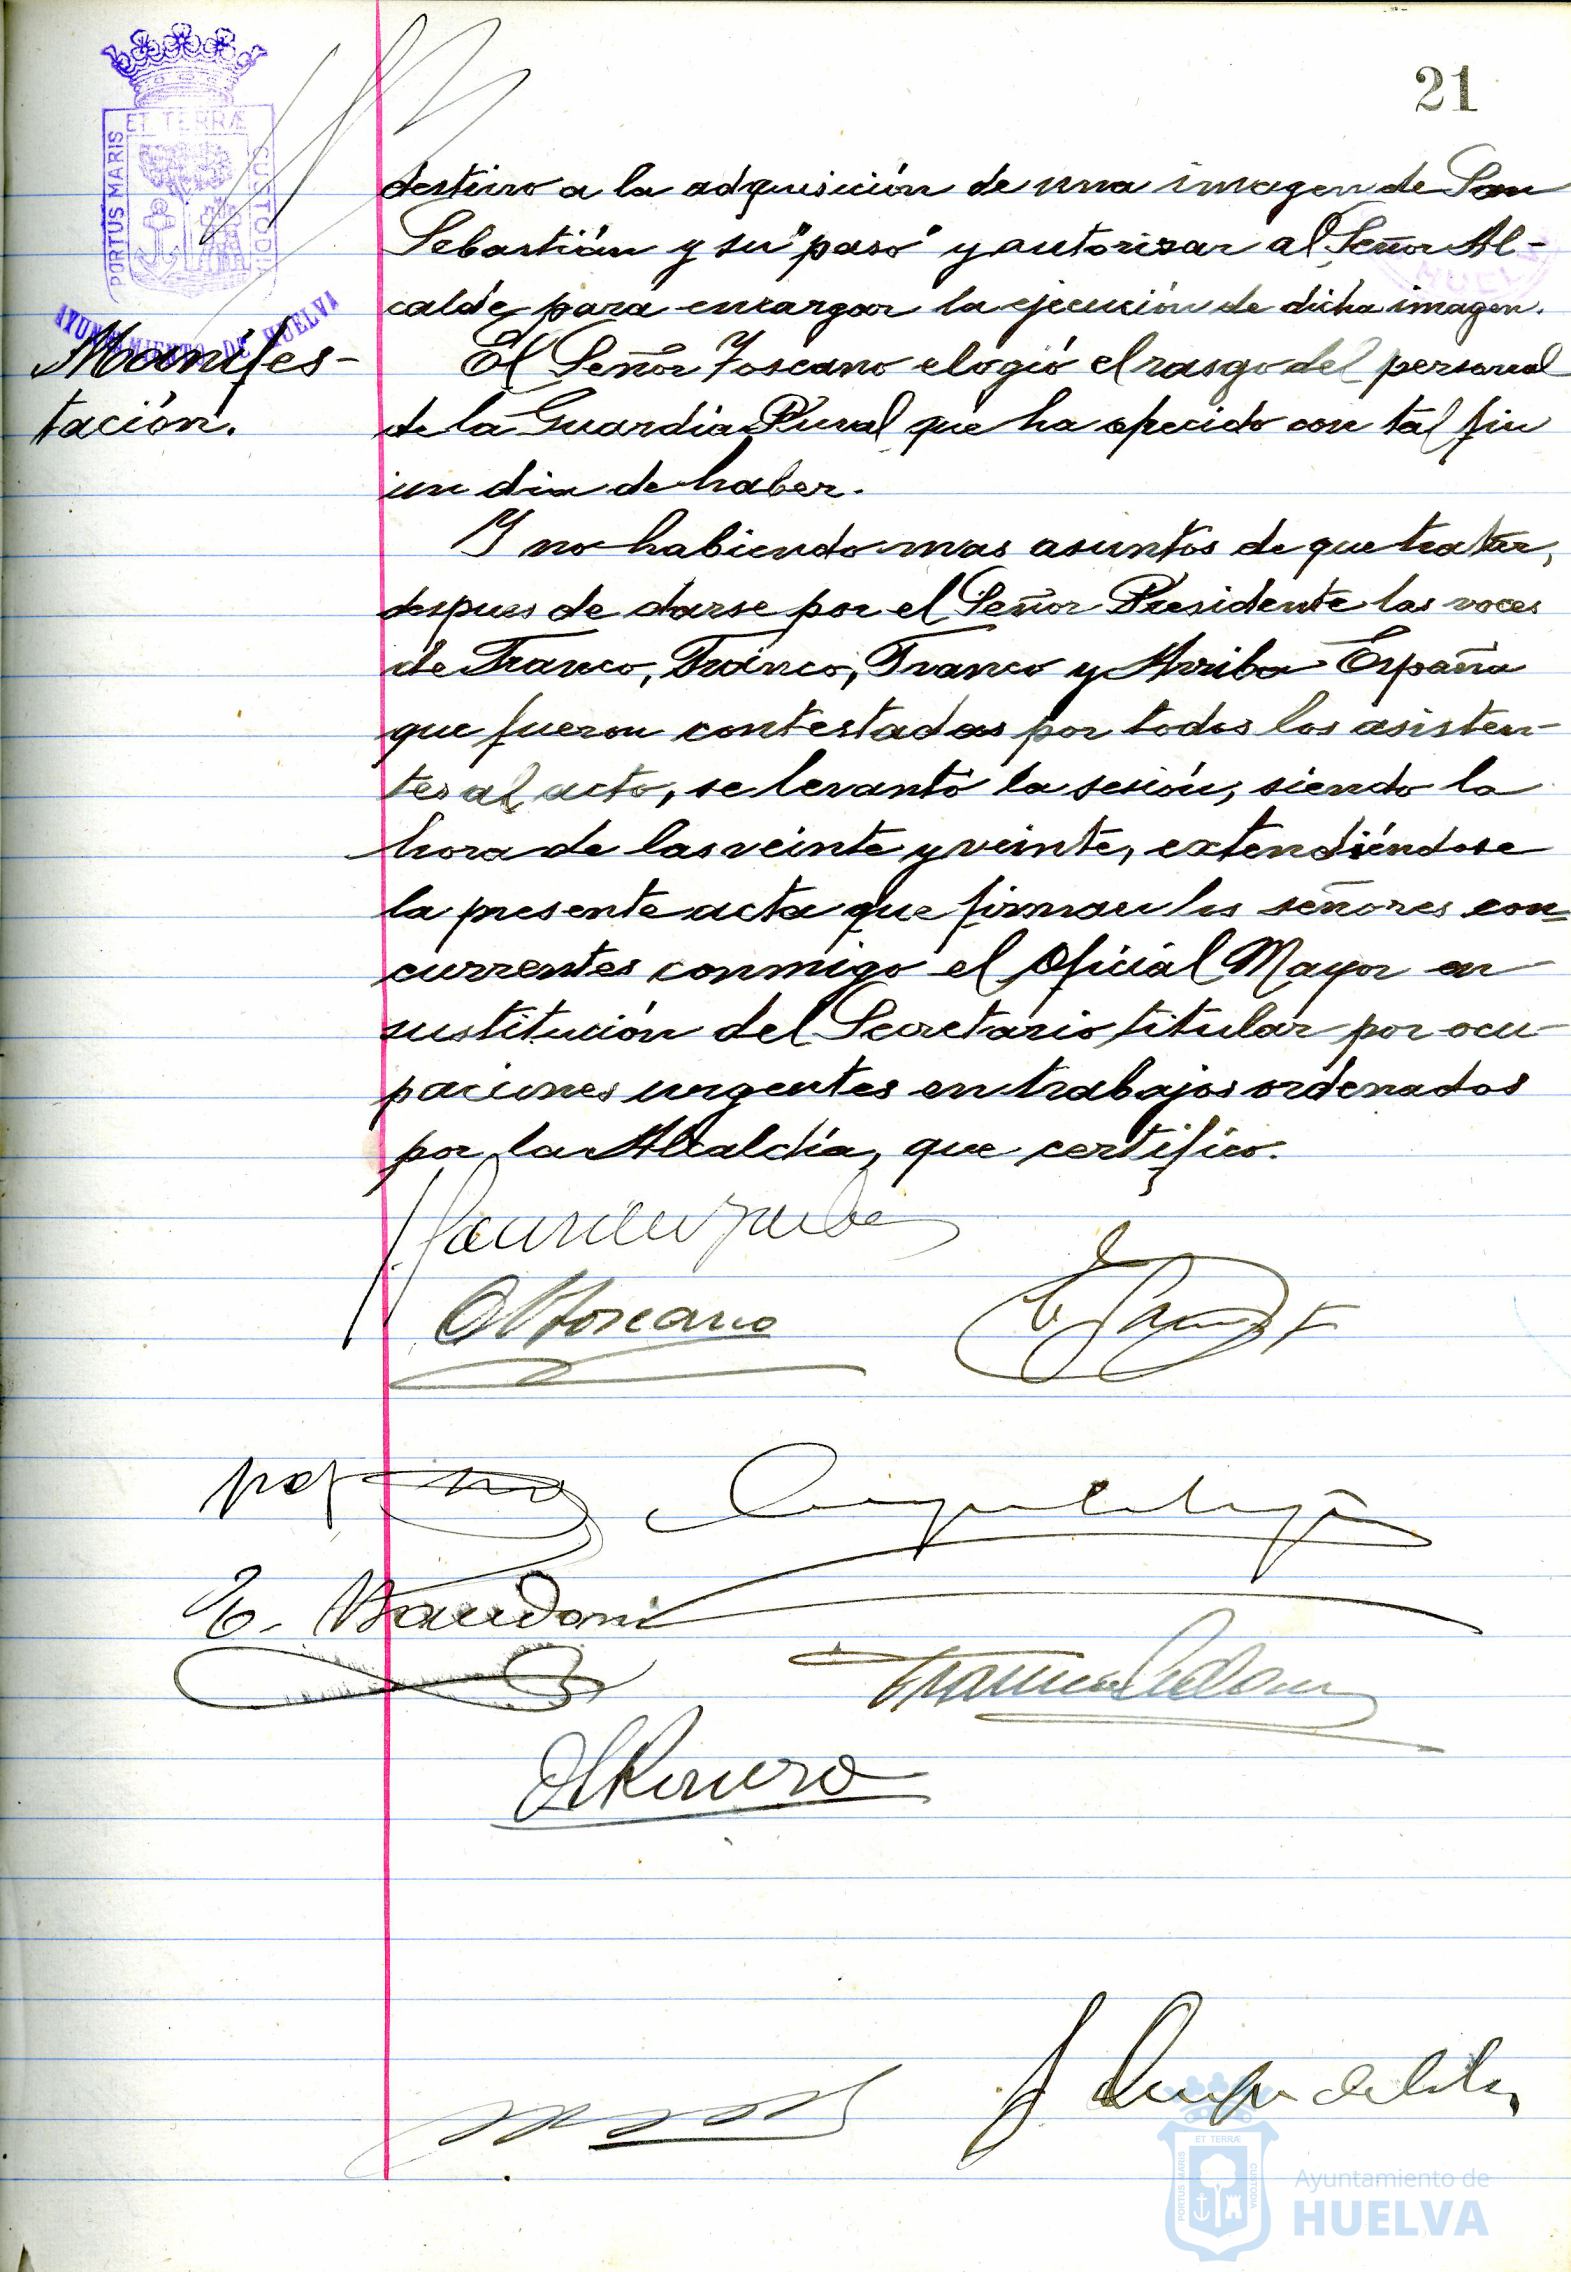 21
ET TERRÆ
PORTUS MARIS
CUSTODIA
AYUNTAMIENTO DE HUELVA
HUELVA
destino a la adquisición de una imagen de San
Sebastián y su "paso" y autorizar al Señor Al-
calde para encargar la ejecución de dicha imagen.
Manifes-
tación.
El Señor Toscano elogió el rasgo del personal
de la Guardia Rural que ha ofrecido con tal fin
un dia de haber.
Y no habiendo mas asuntos de que tratar,
despues de darse por el Señor Presidente las voces
de Franco, Franco, Franco y Arriba España
que fueron contestadas por todos los asisten-
tes al acto, se levantó la sesión, siendo la
hora de las veinte y veinte, extendiéndose
la presente acta que firman los señores con=
currentes conmigo el Oficial Mayor en
sustitución del Secretario titular por ocu-
paciones urgentes en trabajos ordenados
por la Alcaldía, que certifico.
Toscano
ET TERRÆ
PORTUS MARIS
CUSTODIA
Ayuntamiento de
HUELVA